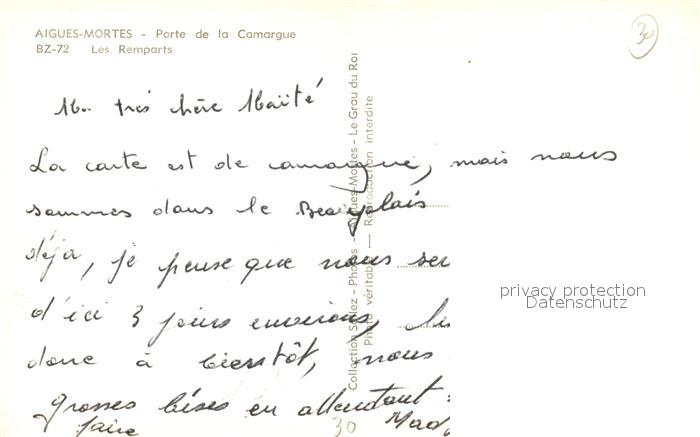 AIGUES-MORTES - Porte de la Camargue
BZ-72 Les Remparts
30
Ma très chère Maïté
La carte est de camargue, mais nous
sommes dans le Beaujolais
déjà, je pense que nous ser
d'ici 3 jours environs,
donc à bientôt, nous
grosses bises en attendant
faire 30
Collection Sollez - Photos - Aigues-Mortes - Le Grau du Roi
Photo véritable — Reproduction interdite
privacy protection
Datenschutz